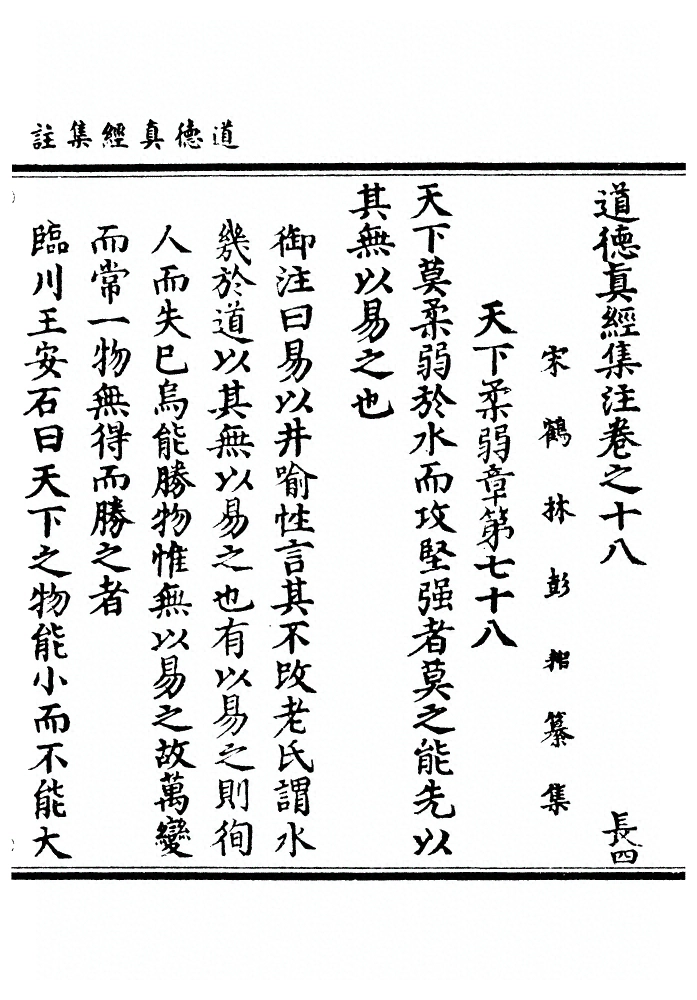 道德真經集註
道德眞經集注卷之十八
長四
宋鶴林彭耜纂集
天下柔弱章第七十八
天下莫柔弱於水而攻堅强者莫之能先以
其無以易之也
御注曰易以井喻性言其不改老氏謂水
幾於道以其無以易之也有以易之則徇
人而失巳烏能勝物惟無以易之故萬變
而常一物無得而勝之者
臨川王安石曰天下之物能小而不能大